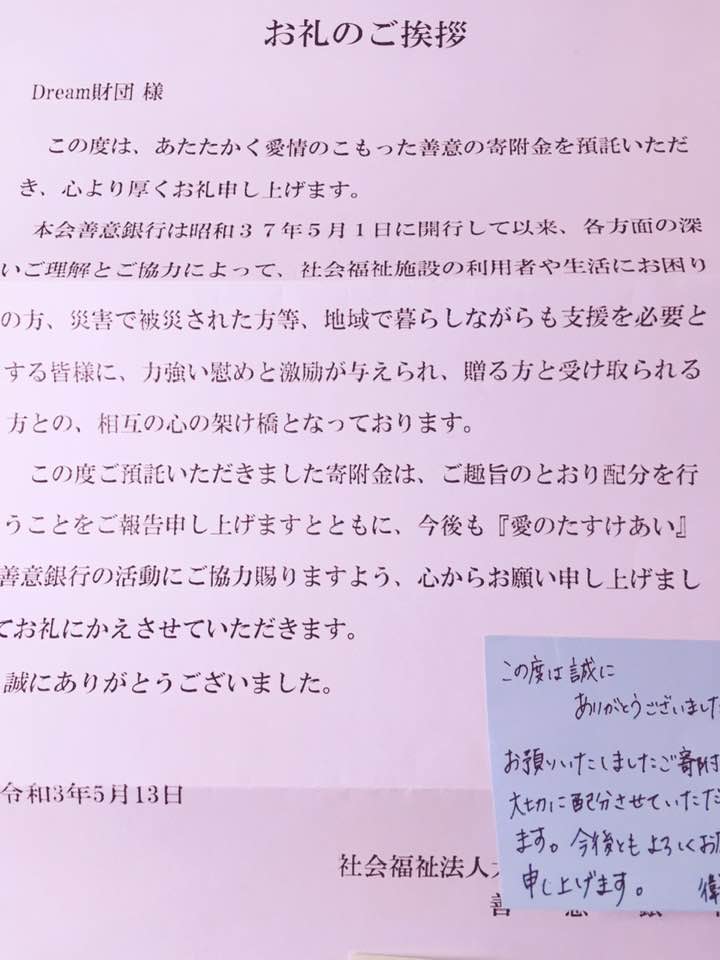 お礼のご挨拶
Dream財団 様
この度は、あたたかく愛情のこもった善意の寄附金を預託いただ
き、心より厚くお礼申し上げます。
本会善意銀行は昭和３７年５月１日に開行して以来、各方面の深
いご理解とご協力によって、社会福祉施設の利用者や生活にお困り
の方、災害で被災された方等、地域で暮らしながらも支援を必要と
する皆様に、力強い慰めと激励が与えられ、贈る方と受け取られる
方との、相互の心の架け橋となっております。
この度ご預託いただきました寄附金は、ご趣旨のとおり配分を行
うことをご報告申し上げますとともに、今後も『愛のたすけあい』
善意銀行の活動にご協力賜りますよう、心からお願い申し上げまし
てお礼にかえさせていただきます。
誠にありがとうございました。
令和3年5月13日
社会福祉法人
善 意 銀
この度は誠に
ありがとうございました
お預りいたしましたご寄附
大切に配分させていただ
ます。今後ともよろしくお
申し上げます。